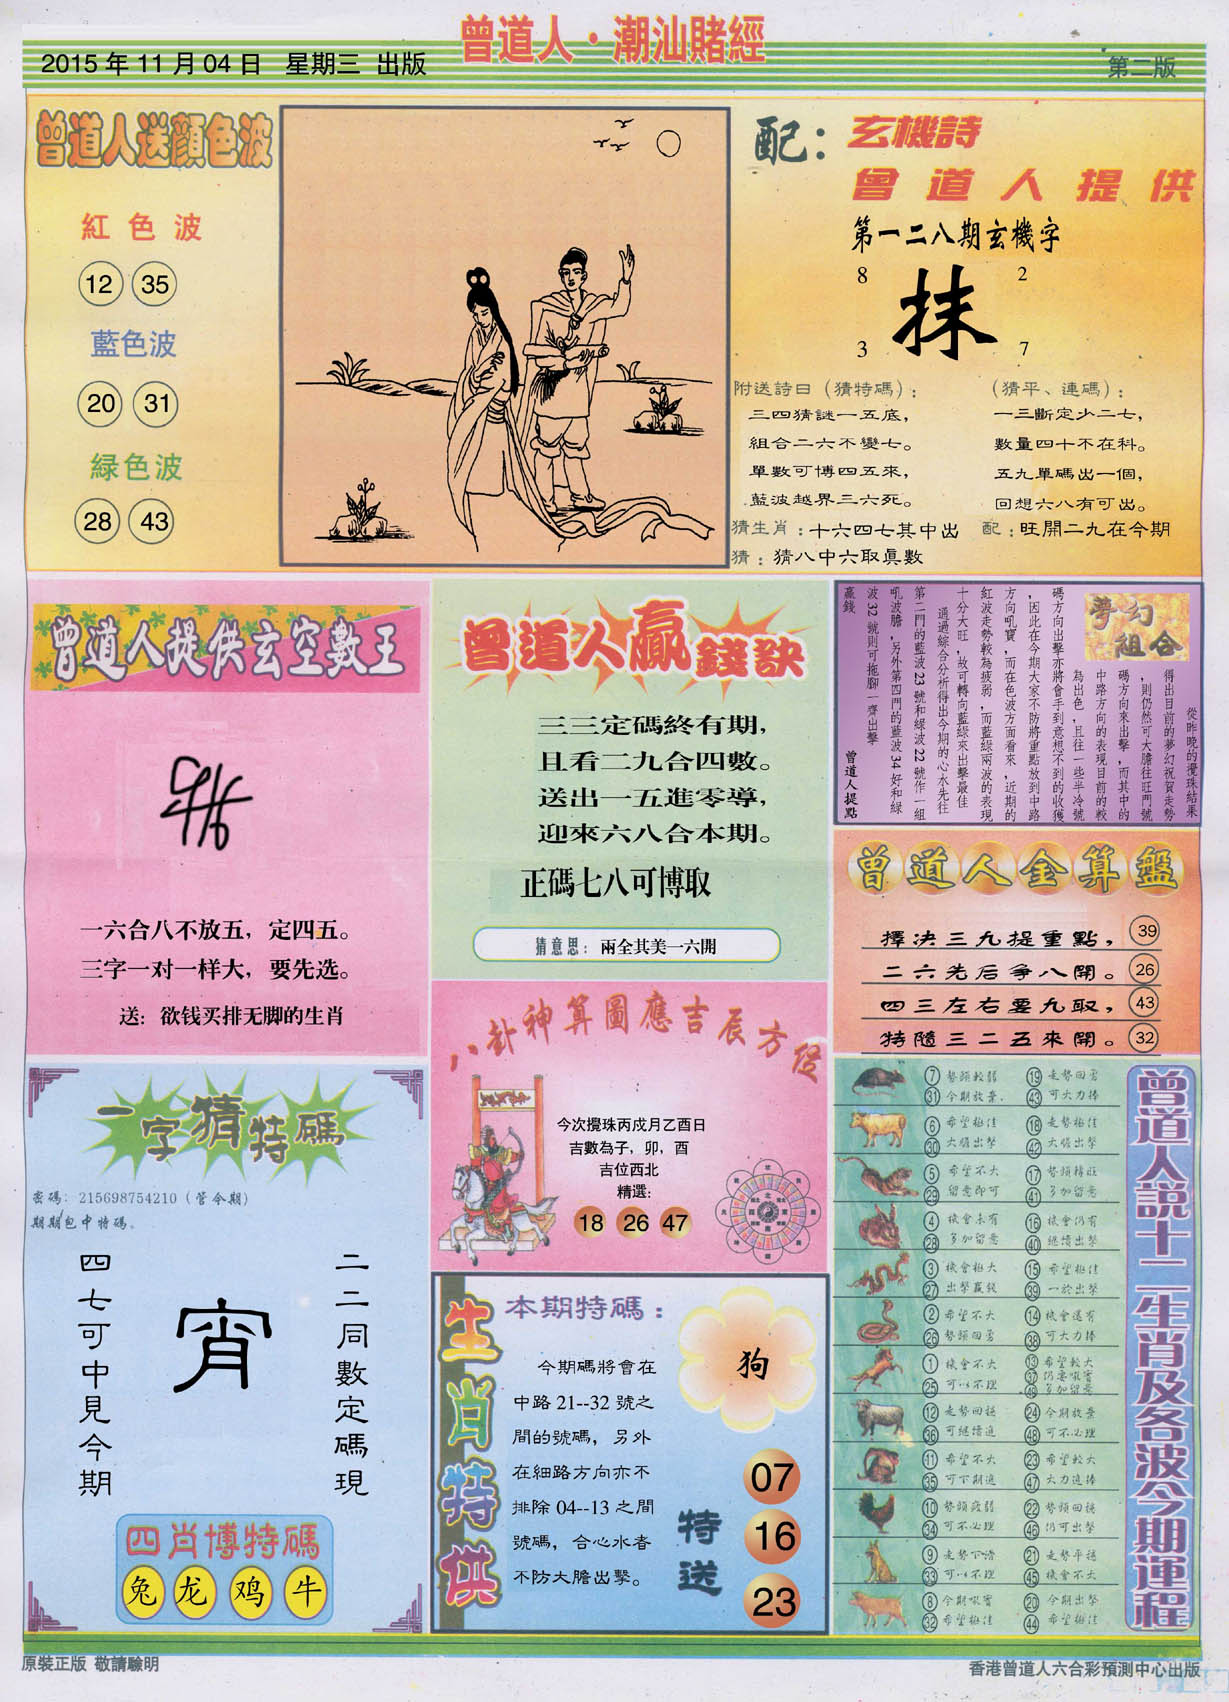 曾道人·潮汕賭經
2015年11月04日 星期三 出版
第二版
曾道人送顏色波
紅色波
12 35
藍色波
20 31
緑色波
28 43
配：
玄機詩
曾道人提供
第一二八期玄機字
8 2
抹
3 7
附送詩曰（猜特碼）：
三四猜謎一五底，
組合二六不變七。
單數可博四五來，
藍波越界三六死。
（猜平、連碼）：
一三斷定少二七，
數量四十不在科。
五九單碼出一個，
回想六八有可出。
猜生肖：十六四七其中出
配：旺開二九在今期
猜：猜八中六取眞數
曾道人提供玄空數王
一六合八不放五，定四五。
三字一对一样大，要先选。
送：欲钱买排无脚的生肖
曾道人贏錢訣
三三定碼終有期，
且看二九合四數。
送出一五進零導，
迎來六八合本期。
正碼七八可博取
猜意思：兩全其美一六開
夢幻
組合
從昨晚的攪珠結果
得出目前的夢幻祝賀走勢
，則仍然可大膽往旺門號
碼方向來出擊，而其中的
中路方向的表現目前的較
為出色，且往一些半冷號
碼方向出擊亦將會手到意想不到的收獲
，因此在今期大家不防將重點放到中路
方向吼寶，而在色波方面看來，近期的
紅波走勢較為疲弱，而藍綠兩波的表現
十分大旺，故可轉向藍綠來出擊最佳
通過綜合分析得出今期的心水先往
第二門的藍波23號和綠波22號作一組
吼波膽，另外第四門的藍波34好和綠
波32號則可拖腳一齊出擊
贏錢
曾道人提點
曾道人金算盤
擇决三九提重點， 39
二六先后爭八開。 26
四三左右要九取， 43
特隨三二五來開。 32
八卦神算圖應吉辰方位
今次攪珠丙戍月乙酉日
吉數為子，卯，酉
吉位西北
精選：
18 26 47
一字猜特碼
密碼：215698754210（管今期）
期期包中特碼。
二二同數定碼現
宵
四七可中見今期
四肖博特碼
兔 龙 鸡 牛
生肖特供
本期特碼：
狗
今期碼將會在
中路21--32號之
間的號碼，另外
在細路方向亦不
排除04--13之間
號碼，合心水者
不防大膽出擊。
特送
07
16
23
曾道人説十二生肖及各波今期運程
7 勢頭較弱 19 走勢回勇
31 今期放棄 43 可大力捧
6 希望極佳 18 走勢極佳
30 大膽出擊 42 大膽出擊
5 希望不大 17 勢頭轉旺
29 留意即可 41 多加留意
4 機會未有 16 機會仍有
28 多加留意 40 繼續出擊
3 機會極大 15 希望極佳
27 出擊贏錢 39 一於出擊
2 希望不大 14 機會還有
26 勢頭回勇 38 可大力捧
1 機會不大 13 希望較大
25 可以不理 37 仍要吼實
49 多加留意
12 走勢回穩 24 今期放棄
36 可繼續追 48 可不必理
11 希望不大 23 希望較大
35 可下期追 47 大力追捧
10 勢頭疲弱 22 勢頭回穩
34 可不必理 46 仍可出擊
9 走勢下滑 21 走勢平穩
33 可以不理 45 機會不大
8 今期吼實 20 今期出擊
32 希望極佳 44 希望極佳
原裝正版 敬請驗明
香港曾道人六合彩預測中心出版